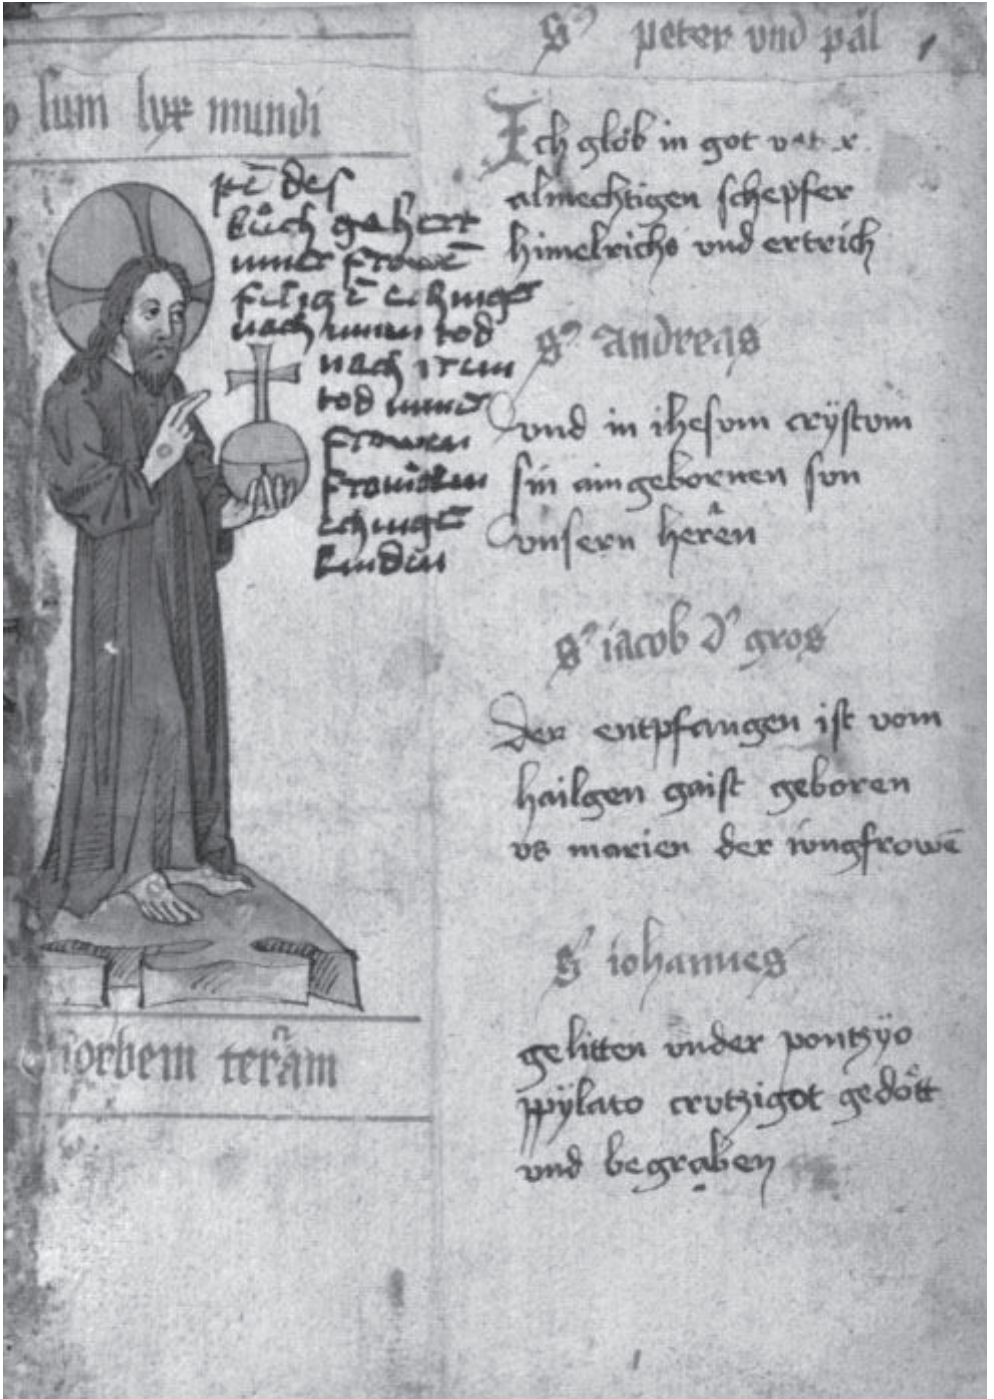 sum lux mundi
des
bůch gehert
miner frowē
nach minen tod
nach irem
tod miner
frowen
kindin
orbem terām
S peter vnd pål
Ich glob in got vater
almechtigen schepfer
himelrichs vnd ertrich
S andreas
vnd in ihesum crÿstum
sin aingebornen sun
vnsern heren
S iacob d gros
Der entpfangen ist vom
hailgen gaist geboren
vs marien der iungfrowē
S iohannes
gelitten vnder pontzÿo
pÿlato crutzigot gedött
vnd begraben